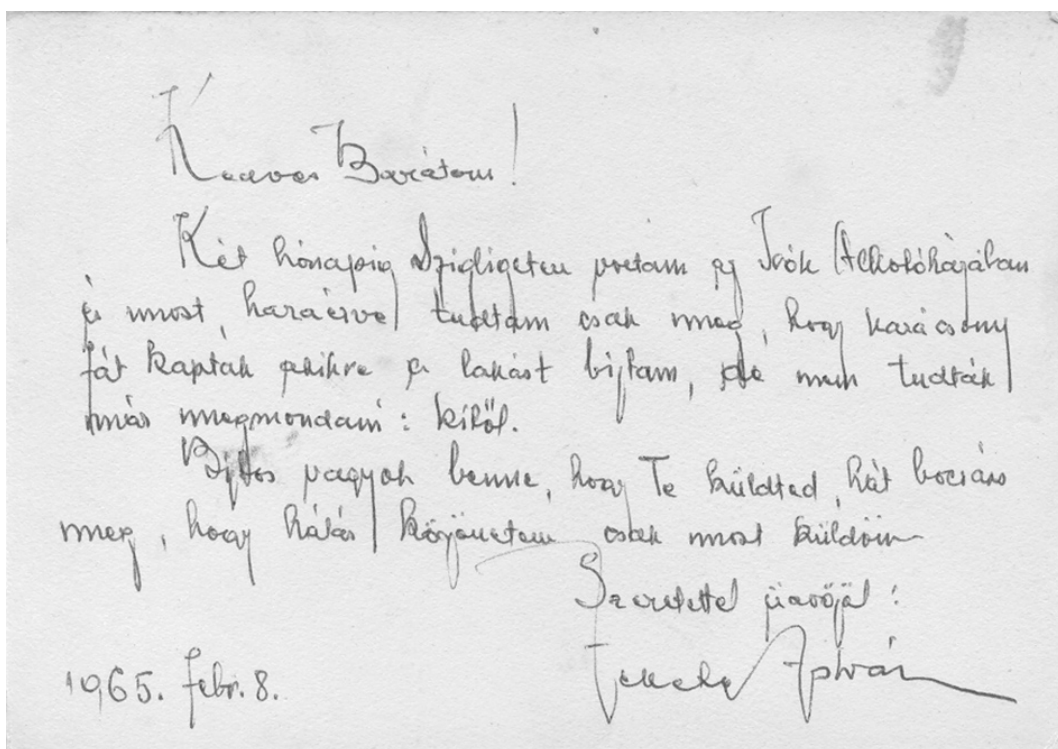 Kedves Barátom!
Két hónapig Szigligeten voltam az Írók Alkotóházában
és most, hazaérve tudtam csak meg, hogy karácsony
fát kaptak, akikre a lakást bíztam, de nem tudták
már megmondani: kitől.
Biztos vagyok benne, hogy Te küldted, hát bocsáss
meg, hogy hálás köszönetem csak most küldöm
Szeretettel üdvözöl:
Fekete István
1965. febr. 8.